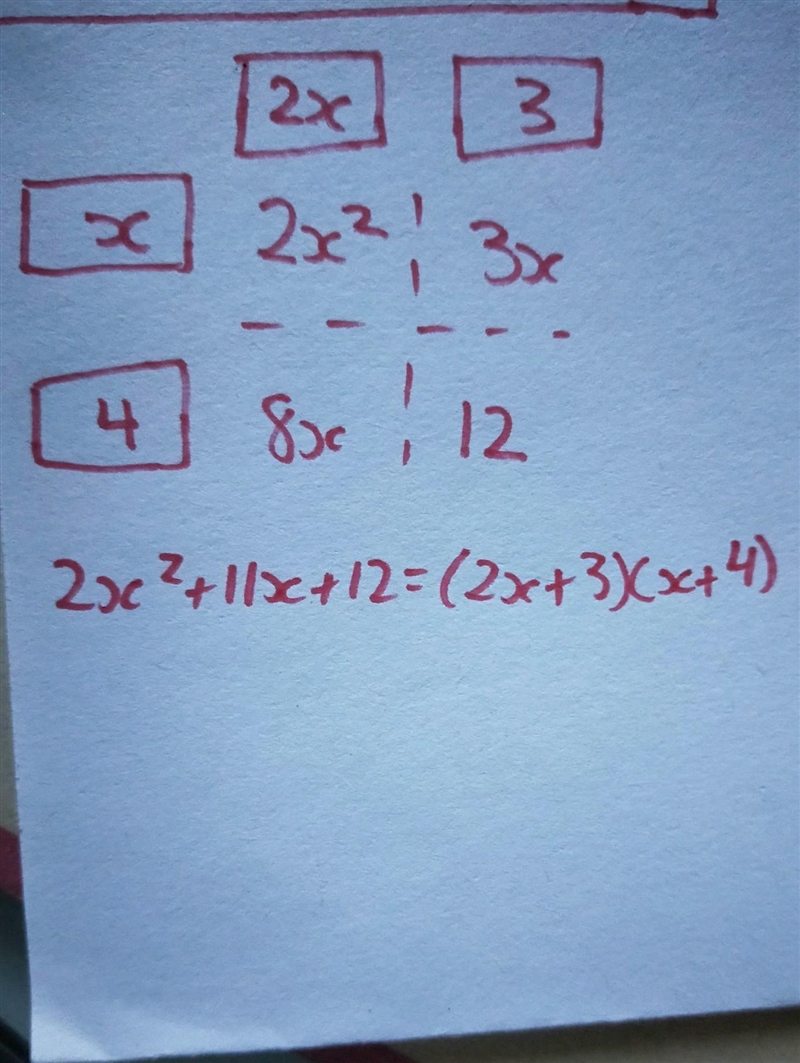 2x 3
x 2x² 3x
4 8x 12
2x²+11x+12=(2x+3)(x+4)